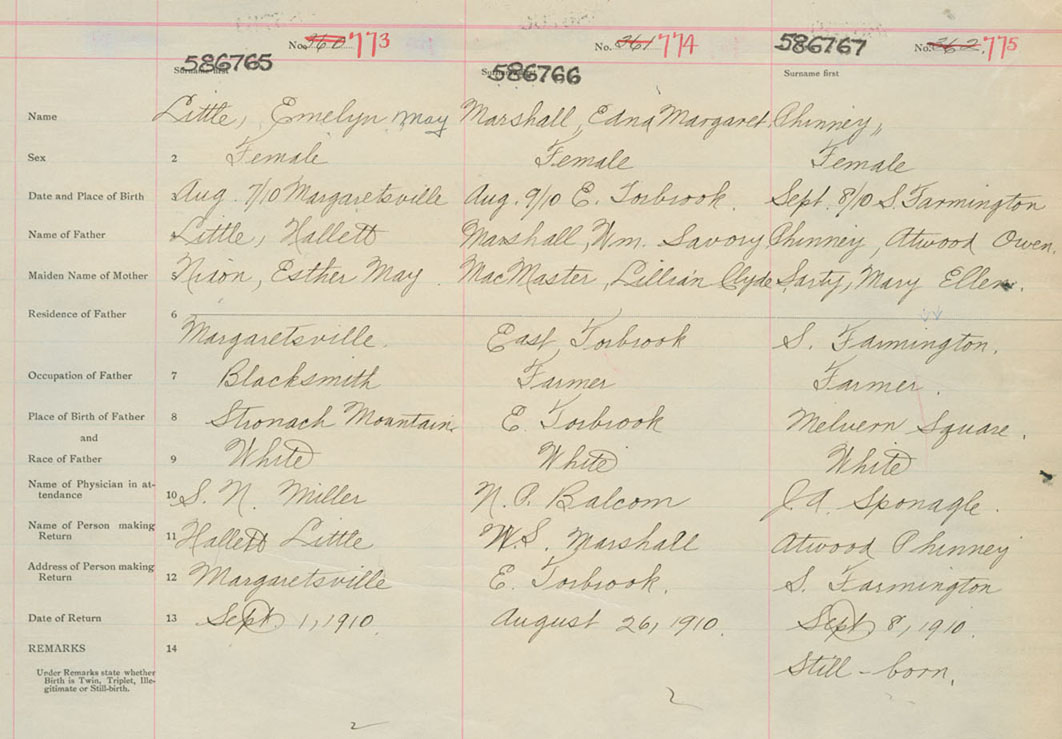 No. 360 773 No. 361 774 586767 No. 362 775
586765 586766
Surname first Surname first Surname first
Name Little, Emelyn May Marshall, Edna Margaret Phinney,
Sex 2 Female Female Female
Date and Place of Birth Aug. 7/10 Margaretsville Aug. 9/10 E. Torbrook. Sept. 8/10 S. Farmington
Name of Father 4 Little, Hallett Marshall, Wm. Savory Phinney, Atwood Owen.
Maiden Name of Mother 5 Nixon, Esther May. MacMaster, Lillian Clyde Sarty, Mary Ellen.
Residence of Father 6
Margaretsville. East Torbrook S. Farmington.
Occupation of Father 7 Blacksmith Farmer Farmer.
Place of Birth of Father 8 Stronach Mountain. E. Torbrook Melvern Square.
and
Race of Father 9 White White White
Name of Physician in at-
tendance 10 S. N. Miller N. P. Balcom J. A. Sponagle.
Name of Person making
Return 11 Hallett Little W. S. Marshall Atwood Phinney
Address of Person making
Return 12 Margaretsville E. Torbrook. S. Farmington
Date of Return 13 Sept 1, 1910. August 26, 1910. Sept 8, 1910.
REMARKS 14
Still-born.
Under Remarks state whether
Birth is Twin, Triplet, Ille-
gitimate or Still-birth.